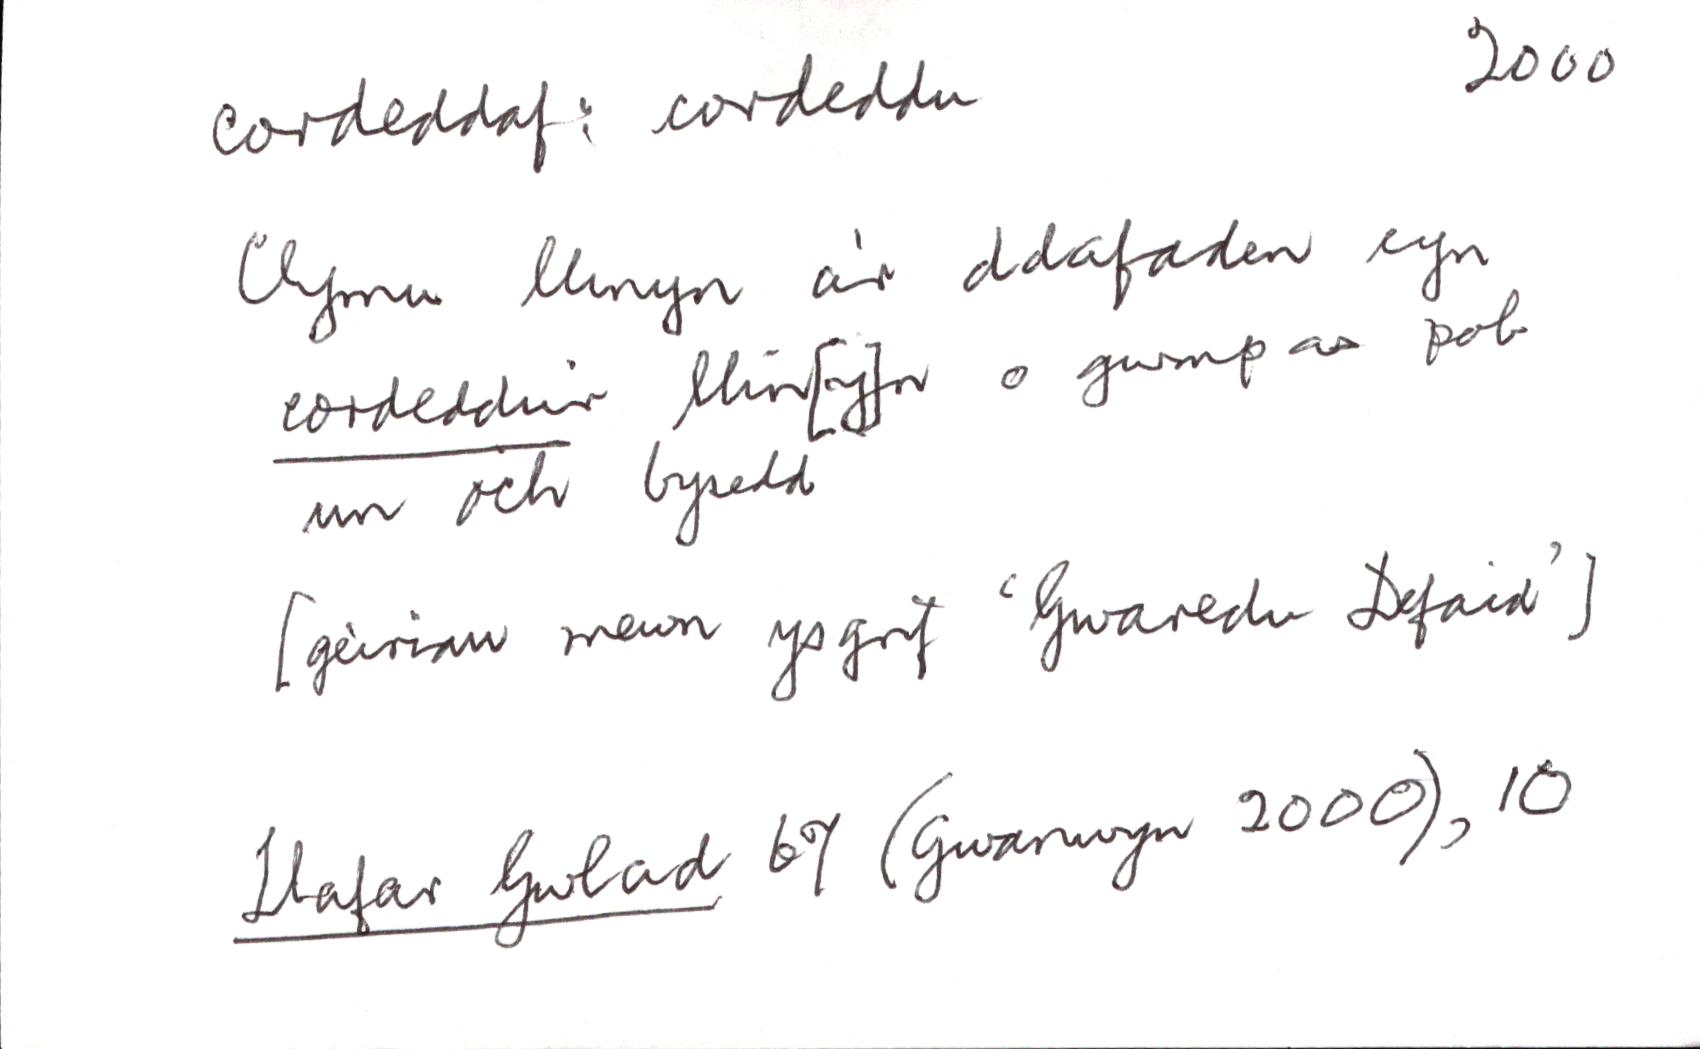 2000
cordeddaf: cordeddu
Clymu llinyn a'r ddafaden cyn
cordeddu'r llin[y]n o gwmpas pob
un o'ch bysedd
[geiriau mewn ysgrif 'Gwaredu Defaid']
Llafar Gwlad 67 (Gwanwyn 2000), 10